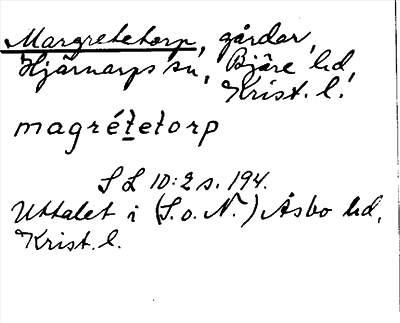 Margretetorp, gårdar,
Hjärnarps sn, Bjäre hd,
Krist. l.
magrétetorp
SL 10:2 s. 194.
Uttalet i (S. o. N.) Åsbo hd,
Krist. l.